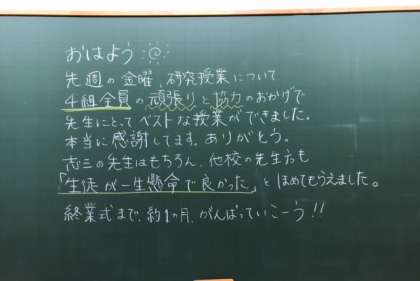 おはよう
先週の金曜、研究授業について
4組全員の頑張りと協力のおかげで
先生にとってベストな授業ができました。
本当に感謝してます。ありがとう。
志三の先生はもちろん、他校の先生方も
「生徒が一生懸命で良かった」とほめてもらえました。
終業式まで、約1ヵ月、がんばっていこーう!!